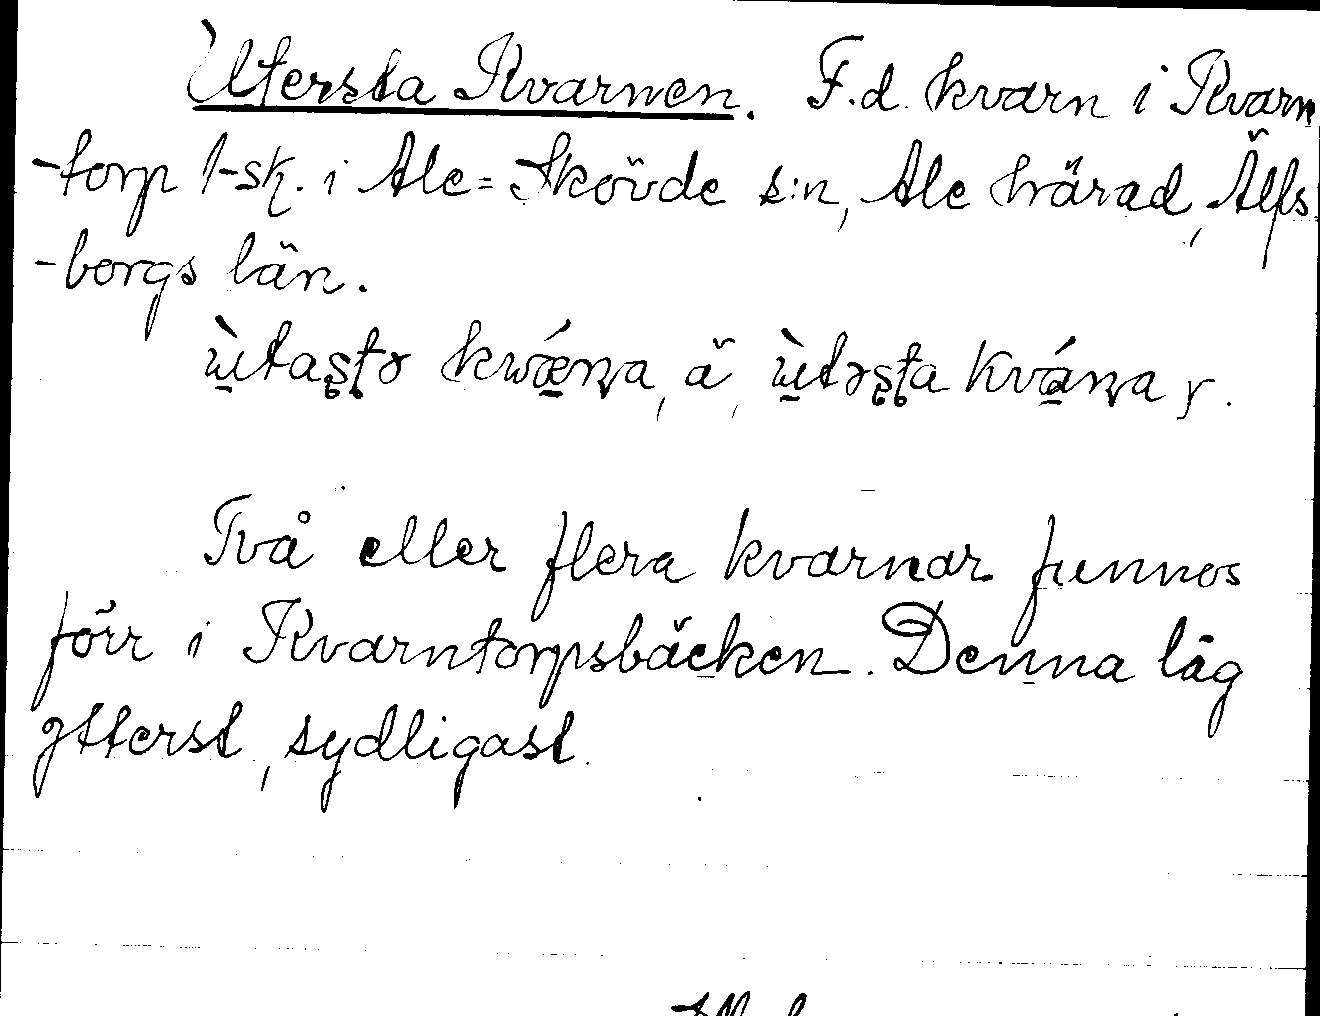 Utersta Kvarnen. F.d. kvarn i Kvarn
-torp 1-sk. i Ale=Skövde s:n, Ale härad, Älfs
-borgs län.
ä, y.
Två eller flera kvarnar funnos
förr i Kvarntorpsbäcken. Denna låg
ytterst, sydligast.